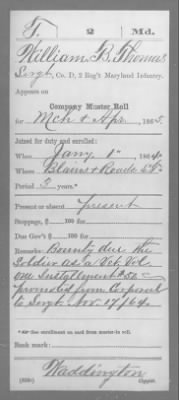 T. 2 Md.
William B. Thomas
Sergt., Co. D, 2 Reg't Maryland Infantry.
Appears on
Company Muster Roll
for Mch & Apr, 1865.
Joined for duty and enrolled:
When Jany 1", 1864.
Where
Period 3 years.*
Present or absent present
Stoppage, $ 100 for
Due Gov't $ 100 for
Remarks: Bounty due the
Soldier as a Vet. Vol.
one Installment $50
promoted from Corporal
to Sergt. Nov. 17/64.
*See enrollment on card from muster-in roll.
Book mark:
Waddington
Copyist.